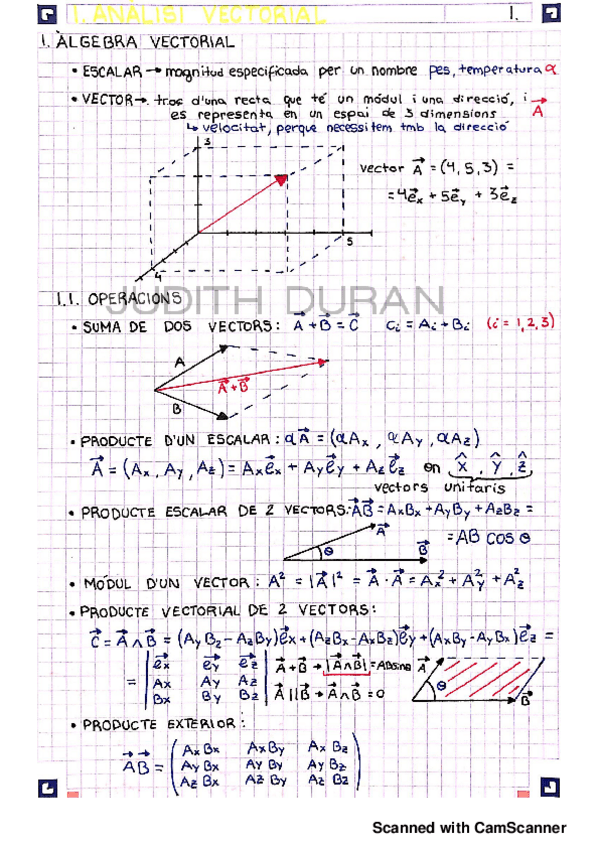 1. ANÀLISI VECTORIAL
1.
1. ÀLGEBRA VECTORIAL
• ESCALAR → magnitud especificada per un nombre pes, temperatura α
• VECTOR → tros d'una recta que té un mòdul i una direcció, i
es representa en un espai de 3 dimensions A⃗
↳ velocitat, perque necessitem tmb la direcció
3
vector A⃗ = (4, 5, 3) =
= 4e⃗x + 5e⃗y + 3e⃗z
5
4
JUDITH DURAN
1.1. OPERACIONS
• SUMA DE DOS VECTORS: A⃗ + B⃗ = C⃗ Ci = Ai + Bi (i = 1, 2, 3)
A
A⃗ + B⃗
B
• PRODUCTE D'UN ESCALAR: αA⃗ = (αAx, αAy, αAz)
A⃗ = (Ax, Ay, Az) = Axe⃗x + Aye⃗y + Aze⃗z on x̂, ŷ, ẑ,
vectors unitaris
• PRODUCTE ESCALAR DE 2 VECTORS: A⃗B⃗ = AxBx + AyBy + AzBz =
A⃗
= AB cos θ
θ B⃗
• MÒDUL D'UN VECTOR: A² = |A⃗|² = A⃗ · A⃗ = Ax² + Ay² + Az²
• PRODUCTE VECTORIAL DE 2 VECTORS:
C⃗ = A⃗ ∧ B⃗ = (AyBz − AzBy)e⃗x + (AzBx − AxBz)e⃗y + (AxBy − AyBx)e⃗z =
= | e⃗x e⃗y e⃗z | A⃗ + B⃗ → |A⃗ ∧ B⃗| = AB sinθ A⃗
| Ax Ay Az | A⃗ || B⃗ → A⃗ ∧ B⃗ = 0 θ
| Bx By Bz | B⃗
• PRODUCTE EXTERIOR:
AxBx AxBy AxBz
A⃗B⃗ = AyBx AyBy AyBz
AzBx AzBy AzBz
Scanned with CamScanner